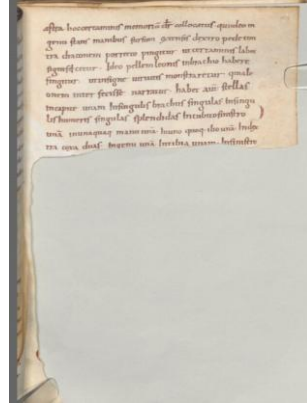 astra hoc certaminis memoria dr̄ collocatus quidem in
genu stans manibus sursum extensis dextro pede con
tra draconem porrecto pingitur ut certaminis labor
significetur. Ideo pellem leonis in brachio habere
fingitur ut insigne virtutis monstraretur quale
onem inter fecisse narratur. habet aut̄ stellas
in caput unam In singulis brachiis singulas in singu
lis humeris singulas splendidas In cubito sinistro
unā manu unā
duas In genu unā In tibia unam